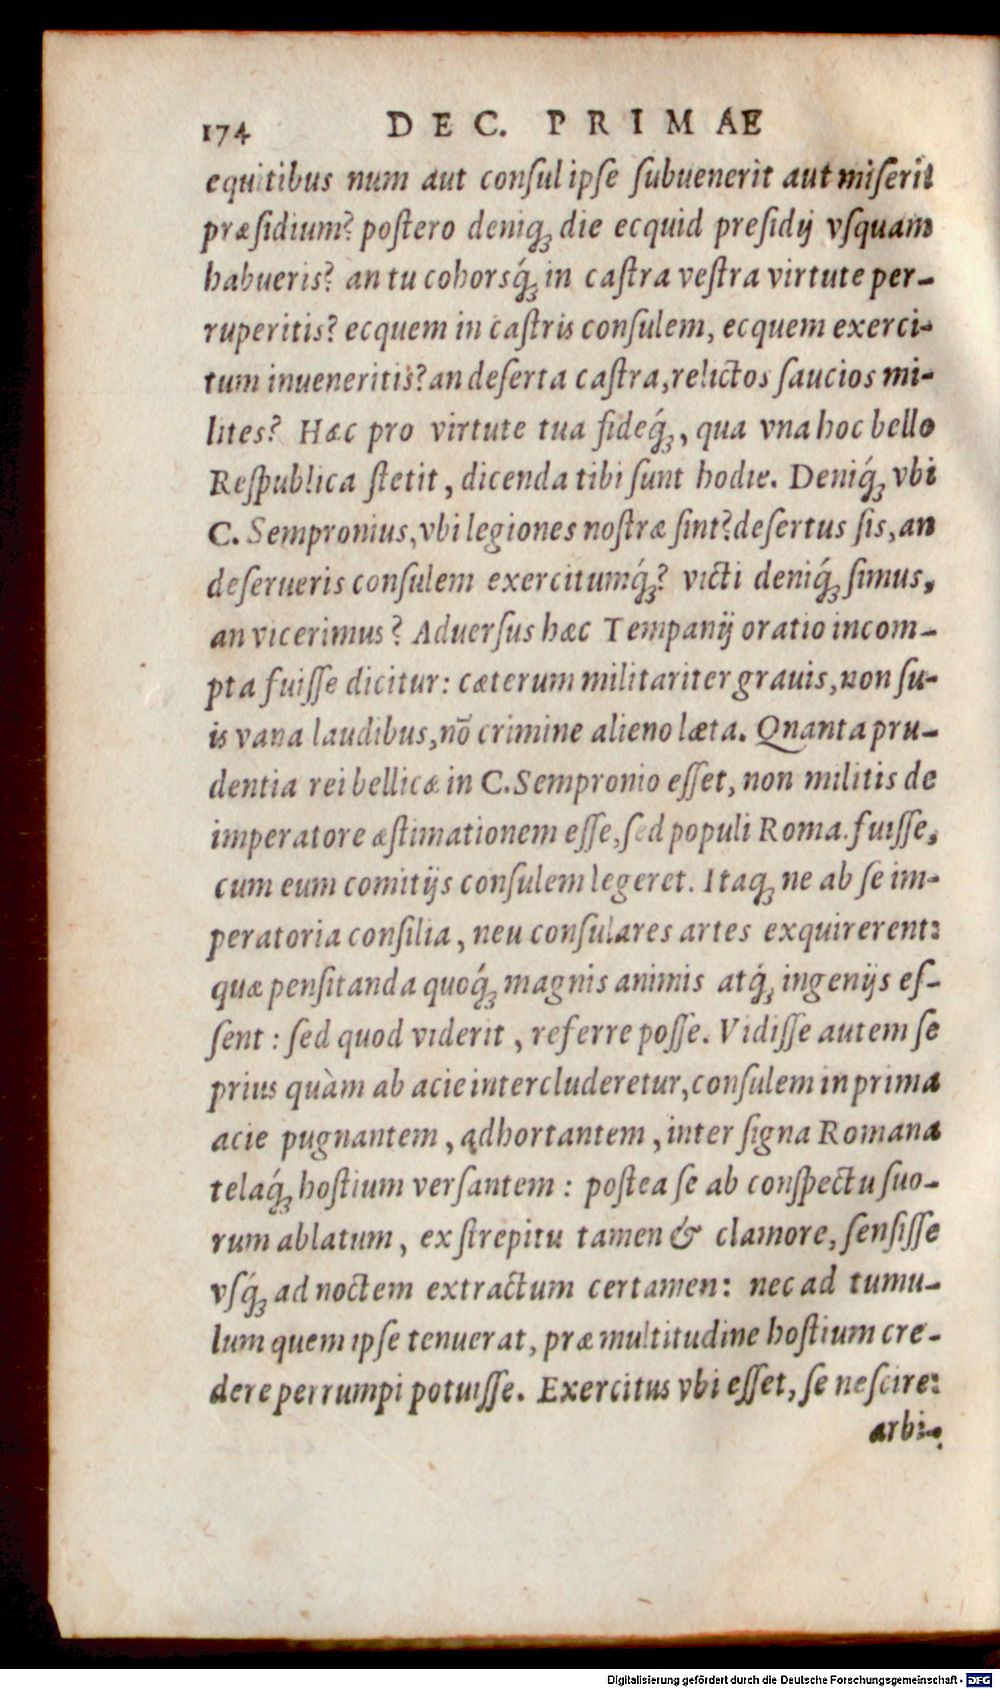 174 DEC. PRIMAE
equitibus num aut consul ipse subuenerit aut miserit
præsidium? postero deniq; die ecquid presidij vsquam
habueris? an tu cohorsq́; in castra vestra virtute per-
ruperitis? ecquem in castris consulem, ecquem exerci-
tum inueneritis? an deserta castra, relictos saucios mi-
lites? Hæc pro virtute tua fideq́;, qua vna hoc bello
Respublica stetit, dicenda tibi sunt hodie. Deniq́; vbi
C. Sempronius, vbi legiones nostræ sint? desertus sis, an
deserueris consulem exercitumq́;? victi deniq́; simus,
an vicerimus? Aduersus hæc Tempanij oratio incom-
pta fuisse dicitur: cæterum militariter grauis, non su-
is vana laudibus, nō crimine alieno læta. Qnanta pru-
dentia rei bellicæ in C. Sempronio esset, non militis de
imperatore æstimationem esse, sed populi Roma. fuisse,
cum eum comitijs consulem legeret. Itaq; ne ab se im-
peratoria consilia, neu consulares artes exquirerent:
quæ pensitanda quoq́; magnis animis atq́; ingenijs es-
sent: sed quod viderit, referre posse. Vidisse autem se
prius quàm ab acie intercluderetur, consulem in prima
acie pugnantem, adhortantem, inter signa Romana
telaq́; hostium versantem: postea se ab conspectu suo-
rum ablatum, ex strepitu tamen & clamore, sensisse
vsq́; ad noctem extractum certamen: nec ad tumu-
lum quem ipse tenuerat, præ multitudine hostium cre-
dere perrumpi potuisse. Exercitus vbi esset, se nescire:
arbi-
Digitalisierung gefördert durch die Deutsche Forschungsgemeinschaft - DFG